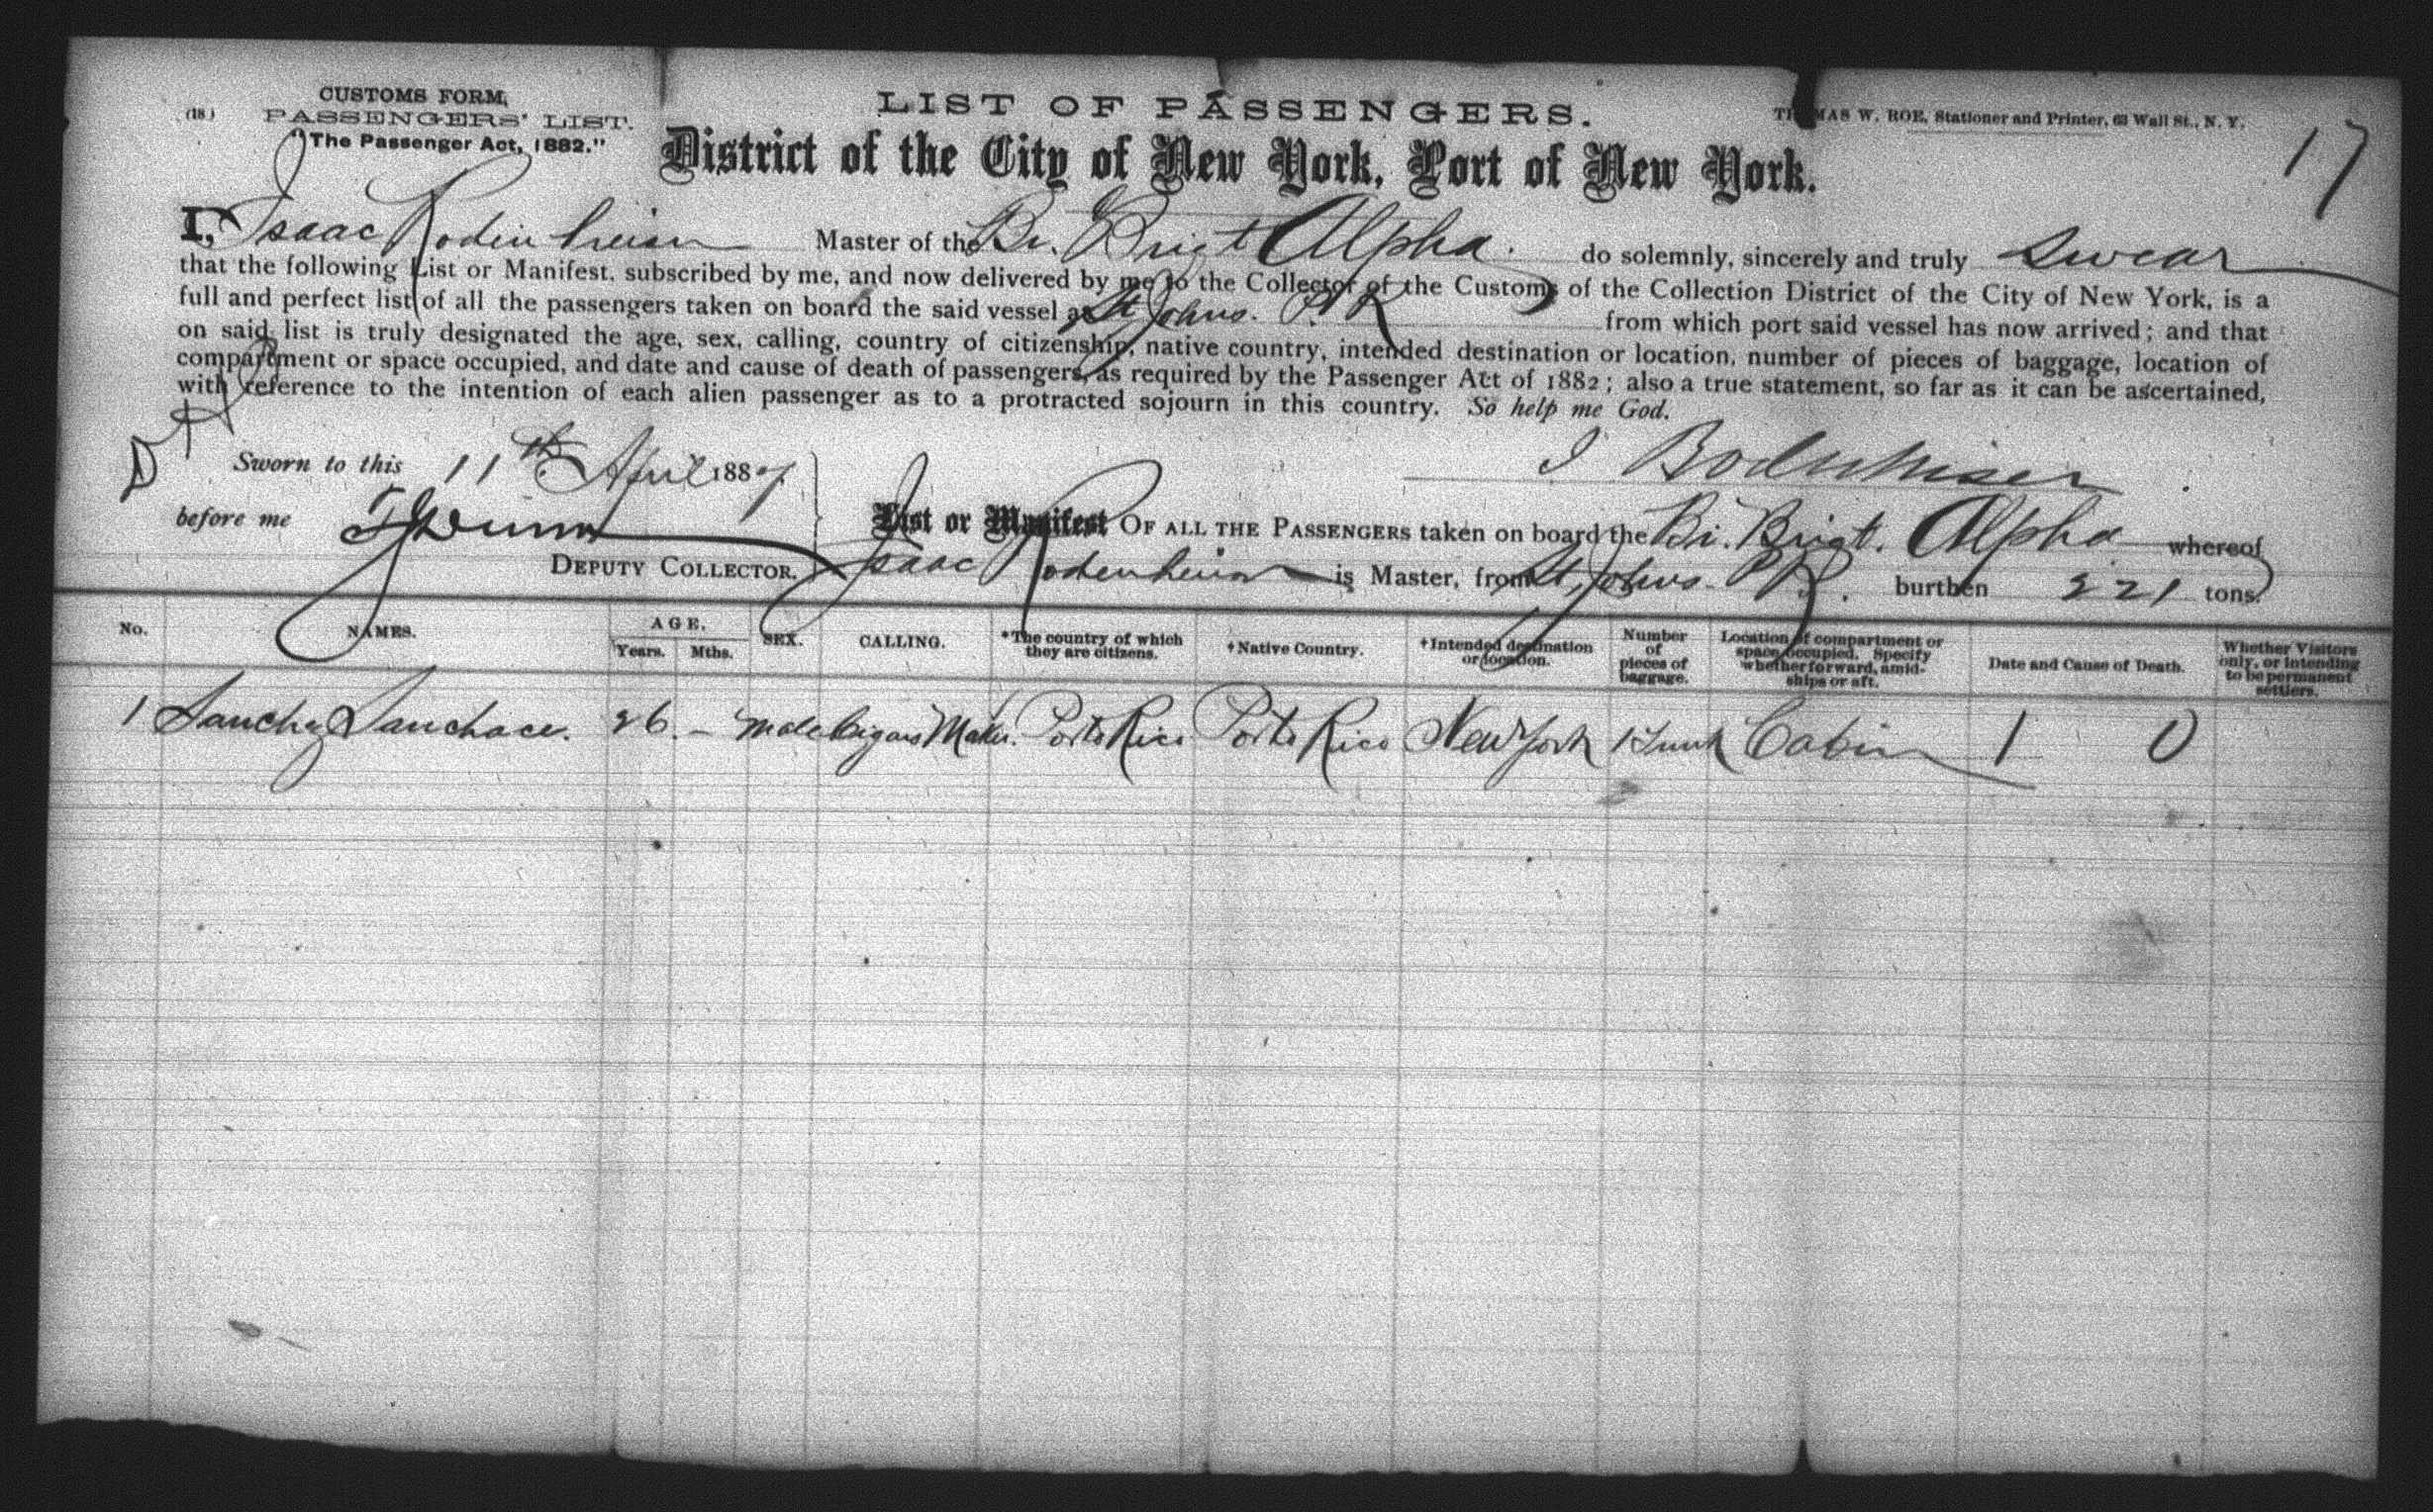 (18)
CUSTOMS FORM,
PASSENGERS' LIST.
"The Passenger Act, 1882."
LIST OF PASSENGERS.
THOMAS W. ROE, Stationer and Printer, 63 Wall St., N. Y.
17
District of the City of New York, Port of New York.
I, Isaac Master of the Br. Brigt Alpha. do solemnly, sincerely and truly Swear
that the following List or Manifest, subscribed by me, and now delivered by me to the Collector of the Customs of the Collection District of the City of New York, is a
full and perfect list of all the passengers taken on board the said vessel at St Johns. P R from which port said vessel has now arrived; and that
on said list is truly designated the age, sex, calling, country of citizenship, native country, intended destination or location, number of pieces of baggage, location of
compartment or space occupied, and date and cause of death of passengers, as required by the Passenger Act of 1882; also a true statement, so far as it can be ascertained,
with reference to the intention of each alien passenger as to a protracted sojourn in this country. So help me God.
Sworn to this 11th April 1887
I
before me Dunn
DEPUTY COLLECTOR.
List or Manifest OF ALL THE PASSENGERS taken on board the Br. Brigt. Alpha whereof
Isaac is Master, from St, Johns. P R. burthen 221 tons.
No. NAMES. AGE. Years. Mths. SEX. CALLING. *The country of which they are citizens. †Native Country. †Intended destination or location. Number of pieces of baggage. Location of compartment or space occupied. Specify whether forward, amidships or aft. Date and Cause of Death. Whether Visitors only, or intending to be permanent settlers.
1 Sanchez Sanchace. 26. – Male Cigars Maker. Porto Rico Porto Rico New York 1 Trunk Cabin 1 0